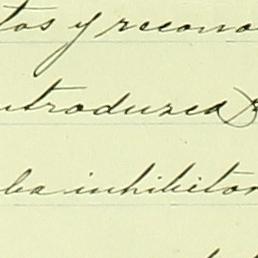 tos y recono
ntroduzca
ba inhibitor